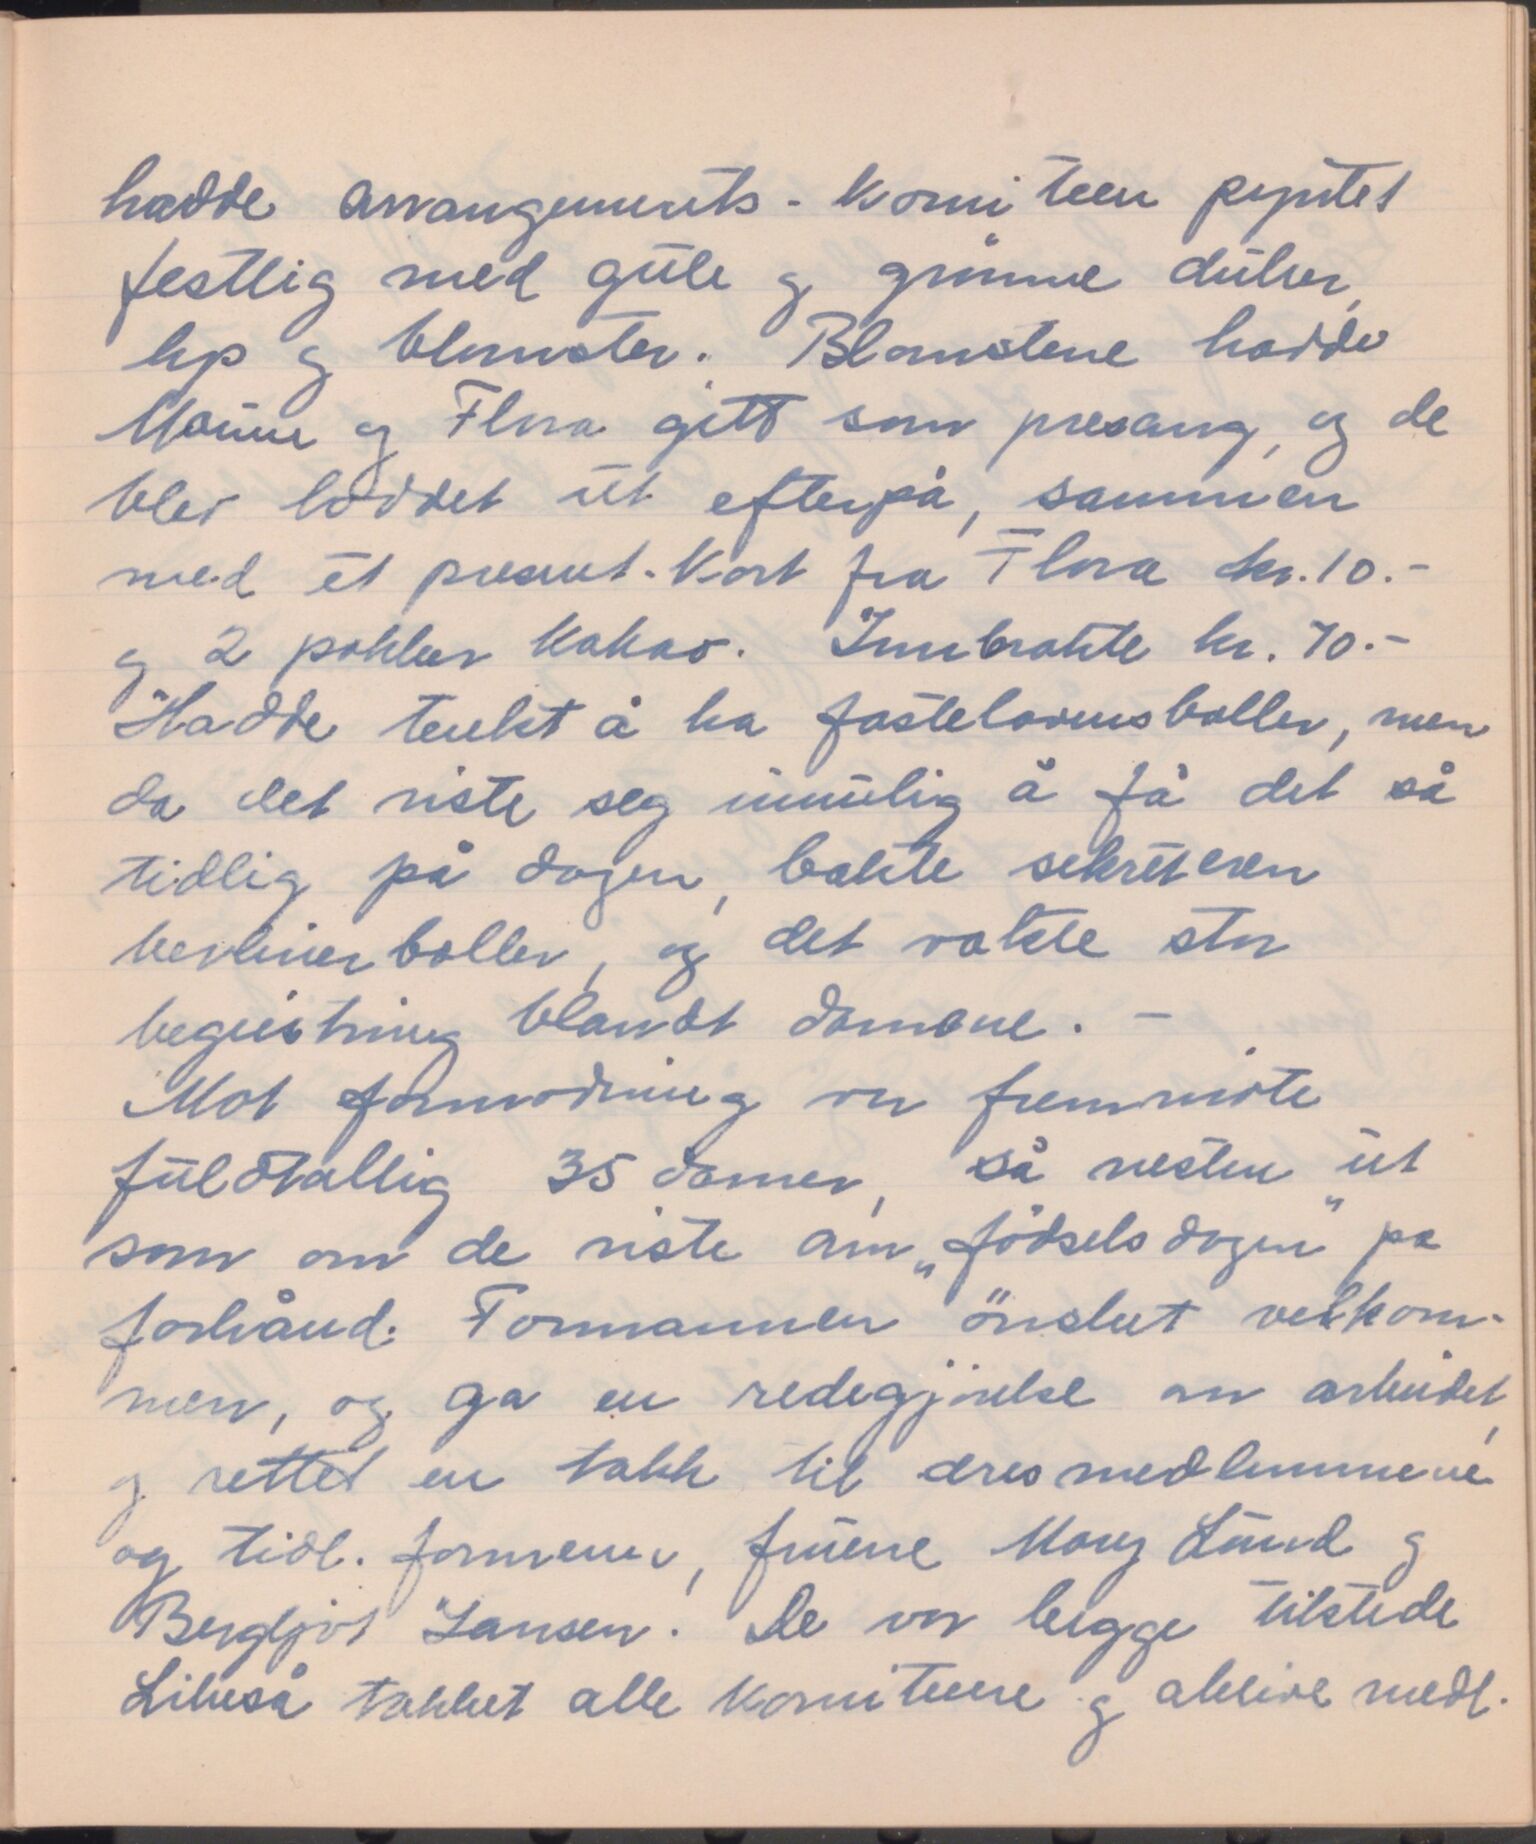 hadde arrangements-komiteen pyntet
festlig med gule og grønne duker,
lys og blomster. Blomstene hadde
og Flora gitt som presang, og de
blev loddet ut efterpå, sammen
med et present-kort fra Flora kr. 10.-
og 2 pakker kakao. Innbrakte kr. 70.-
Hadde tenkt å ha fastelavensboller, men
da det viste seg umulig å få det så
tidlig på dagen, bakte sekretæren
berlinerboller, og det vakte stor
begeistring blandt damene. -
Mot formodning var fremmøte
fuldtallig 35 damer, så nesten ut
som om de viste om „fødselsdagen" på
forhånd. Formannen ønsket velkom-
men, og ga en redegjørelse om arbeidet,
og rettet en takk til æresmedlemmene
og tidl. formenn, fruene Mary Lund og
Bergljot Jansen. De var begge tilstede
Likeså takket alle komiteene og aktive medl.